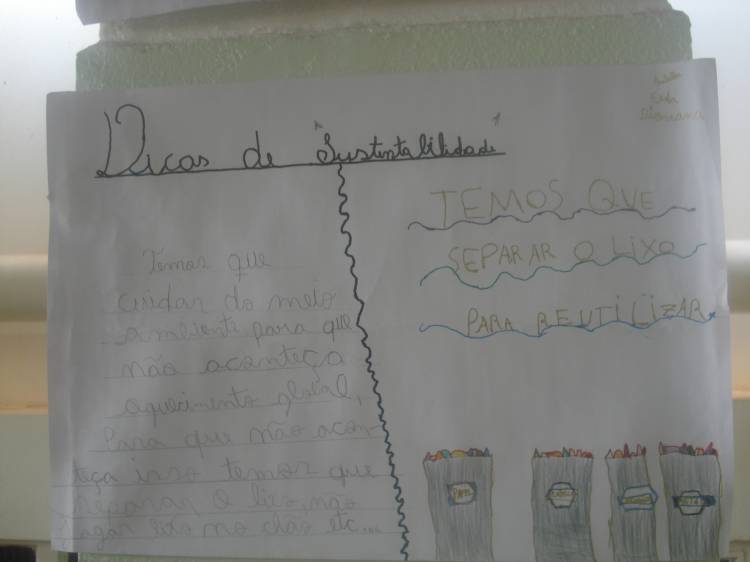 Dicas de "Sustentabilidade"
Temos que
cuidar do meio
ambiente para que
não aconteça
aquecimento global,
Para que não acon-
teça isso temos que
separar o lixo, não
jogar lixo no chão etc...
TEMOS QUE
SEPARAR O LIXO
PARA REUTILIZAR
PAPEL